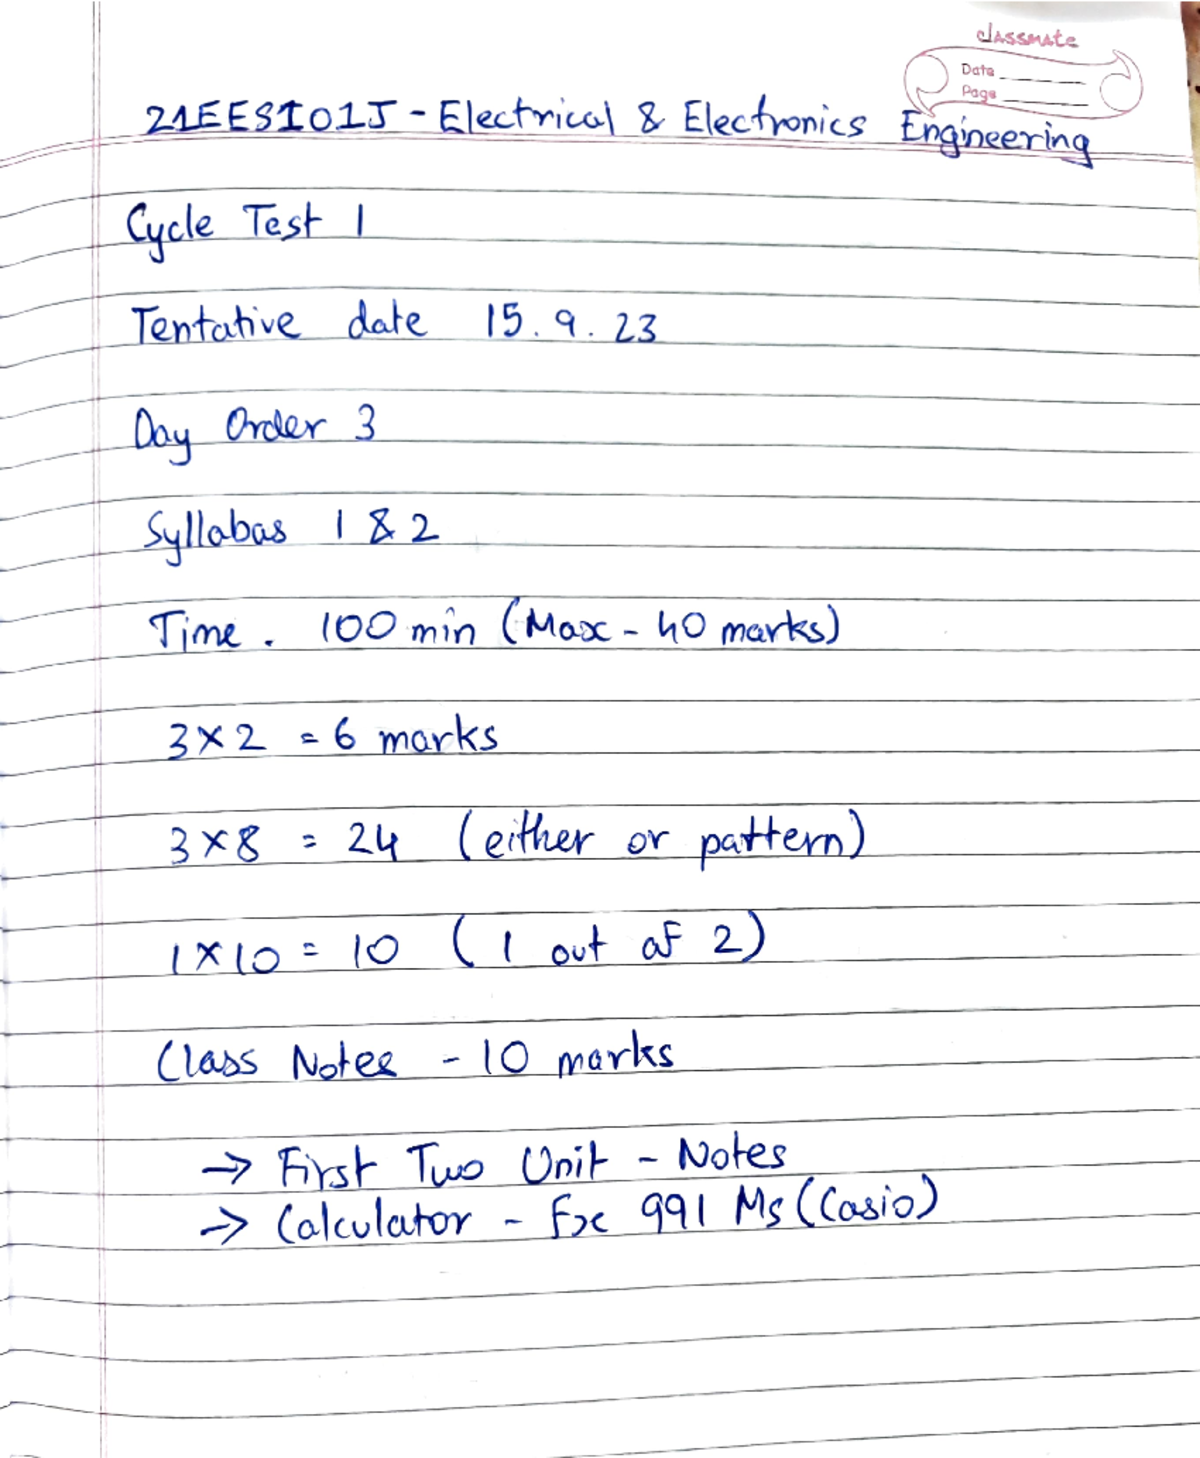 classmate
Date
Page
21EESI01J - Electrical & Electronics Engineering
Cycle Test 1
Tentative date 15.9.23
Day Order 3
Syllabas 1 & 2
Time. 100 min (Max - 40 marks)
3 x 2 = 6 marks
3 x 8 = 24 (either or pattern)
1 x 10 = 10 (1 out of 2)
Class Notes - 10 marks
→ First Two Unit - Notes
→ Calculator - Fx 991 Ms (Casio)